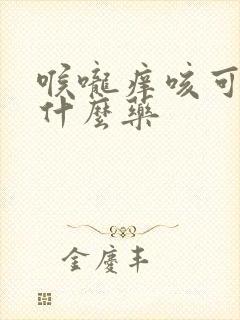 喉嚨痒咳可
什麼藥
金慶丰